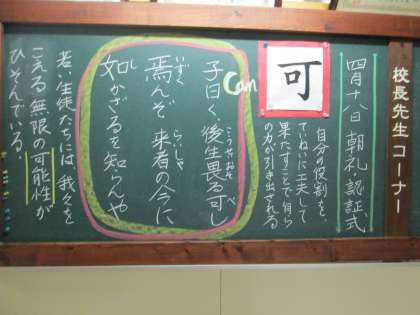 校長先生コーナー
四月十八日 朝礼・認証式
可
自分の役割を、
ていねいに工夫して
果たすことで自ら
の力が引き出される
Can
子曰く、後生畏る可し
こうせいおそ べ
焉んぞ 来者の今に
いずく らいしゃ
如かざるを知らんや
し
若い生徒たちには、我々を
こえる無限の可能性が
ひそんでいる。